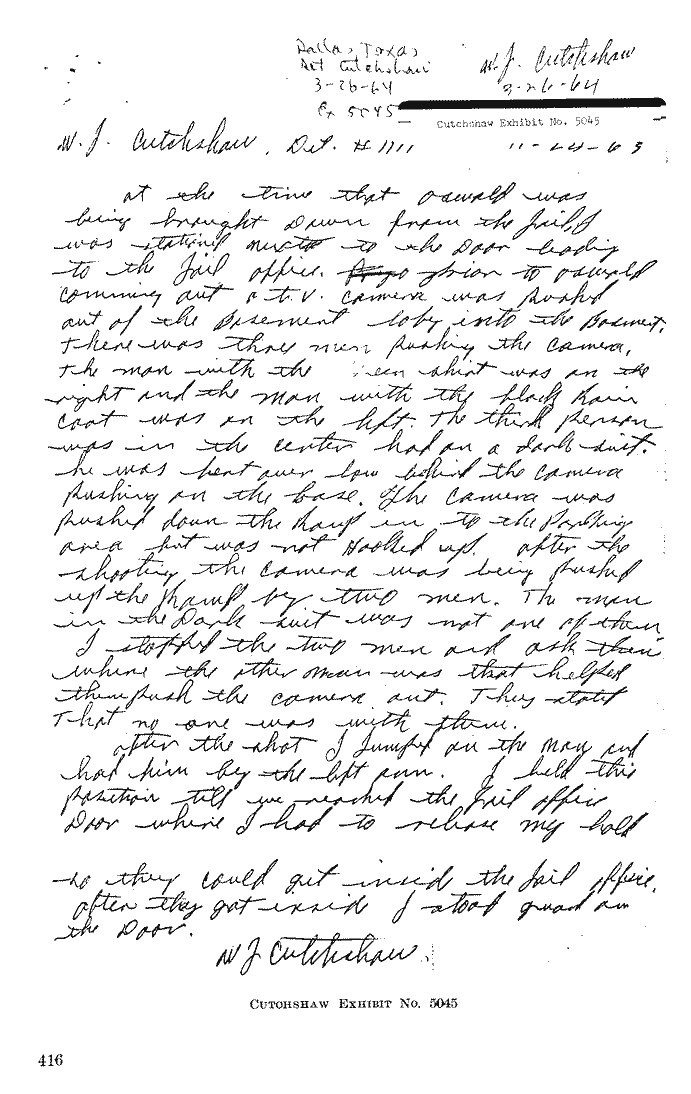 Dallas, Texas
Art Cutchshaw
3-26-64
Ex 5045
W. J. Cutchshaw
3-26-64
Cutchshaw Exhibit No. 5045
W. J. Cutchshaw, Det. # 1711
11-24-63
at the time that Oswald was
being brought Down from the Jail, I
was stationd next to the Door leading
to the Jail office. prior to Oswald
comming out a t.v. camera was pushed
out of the Basement loby into the Basment.
There was three men pushing the camera,
the man with the shirt was on the
right and the man with the black Rain
Coat was on the left. The third person
was in the center had on a dark suit.
he was bent over low behind the camera
pushing on the base. The camera was
pushed down the Ramp in to the Parking
area but was not Hooked up. after the
shooting the camera was being pushed
up the Ramp by two men. The man
in the Dark suit was not one of them
I stopped the two men and ask them
where the other man was that helped
them push the camera out. They stated
That no one was with them.
after the shot I Jumped on the man and
had him by the left arm. I held this
position till we reached the Jail office
Door where I had to release my hold
so they could get inside the Jail office.
after they got inside I stood guard on
the Door.
W J Cutchshaw
Cutchshaw Exhibit No. 5045
416